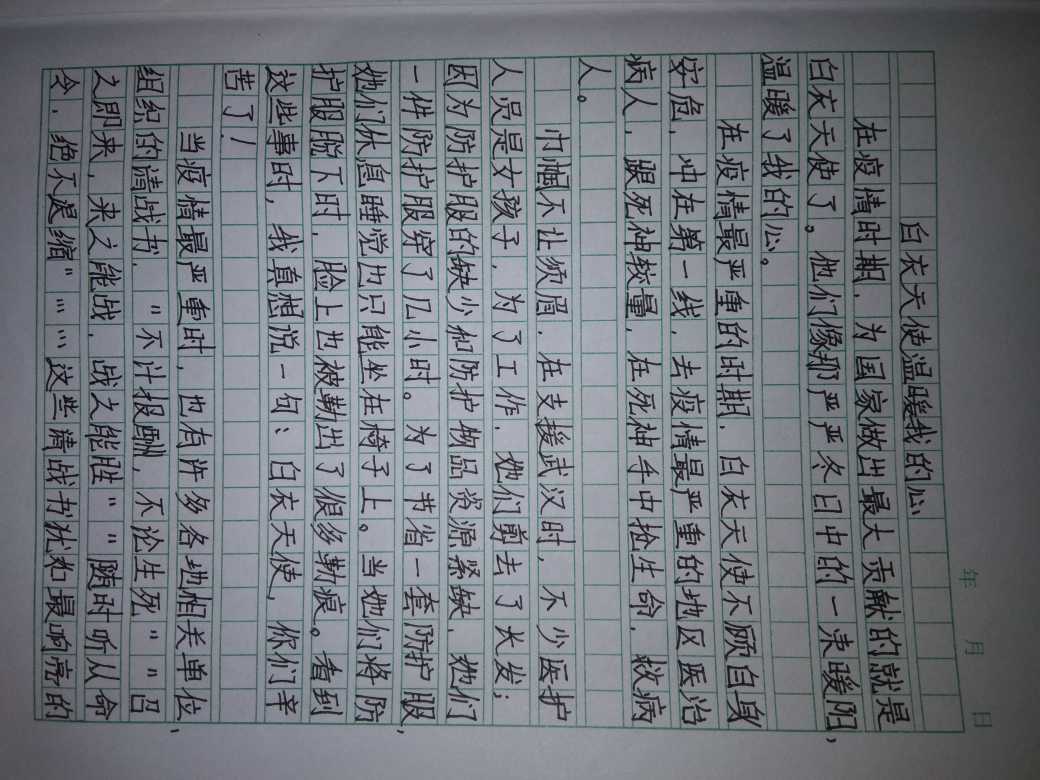 年 月 日
白衣天使温暖我的心
在疫情时期，为国家做出最大贡献的就是
白衣天使了。他们像那严严冬日中的一束暖阳，
温暖了我的心。
在疫情最严重的时期，白衣天使不顾自身
安危，冲在第一线，去疫情最严重的地区医治
病人，跟死神较量，在死神手中抢生命，救病
人。
巾帼不让须眉，在支援武汉时，不少医护
人员是女孩子，为了工作，她们剪去了长发；
因为防护服的缺少和防护物品资源紧缺，她们
一件防护服穿了几小时。为了节省一套防护服，
她们休息睡觉也只能坐在椅子上。当她们将防
护服脱下时，脸上也被勒出了很多勒痕。看到
这些事时，我真想说一句：白衣天使，你们辛
苦了！
当疫情最严重时，也有许多各地相关单位，
组织的请战书，“不计报酬，不论生死”“召
之即来，来之能战，战之能胜”“随时听从命
令，绝不退缩”……这些请战书犹如最响亮的